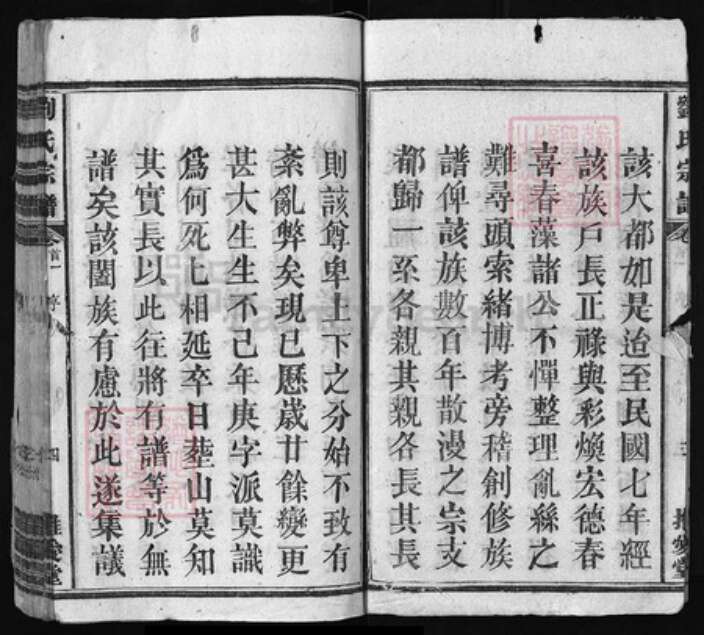 劉氏宗譜
該大都如是迨至民國七年經
該族戶長正祿與彩煥宏德春
喜春藻諸公不憚整理亂絲之
難尋頭索緒博考旁稽創修族
譜俾該族數百年散漫之宗支
都歸一系各親其親各長其長
則該尊卑上下之分始不致有
紊亂弊矣現已歷歲廿餘變更
甚大生生不已年庚字派莫識
為何死亡相延卒日塟山莫知
其實長以此往將有譜等於無
譜矣該闔族有慮於此遂集議
劉氏宗譜
卷首一
序
四